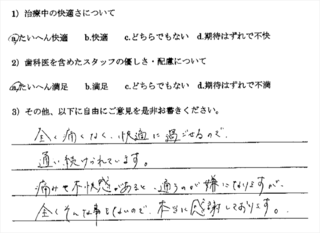 1) 治療中の快適さについて
a.たいへん快適 b.快適 c.どちらでもない d.期待はずれで不快
2) 歯科医を含めたスタッフの優しさ・配慮について
a.たいへん満足 b.満足 c.どちらでもない d.期待はずれで不満
3) その他、以下に自由にご意見を是非お書きください。
全く痛くなく、快適に過ごせるので、
通い続けられています。
痛みや不快感があると通うのが嫌になりますが、
全くそんな事もないので、本当に感謝しております。